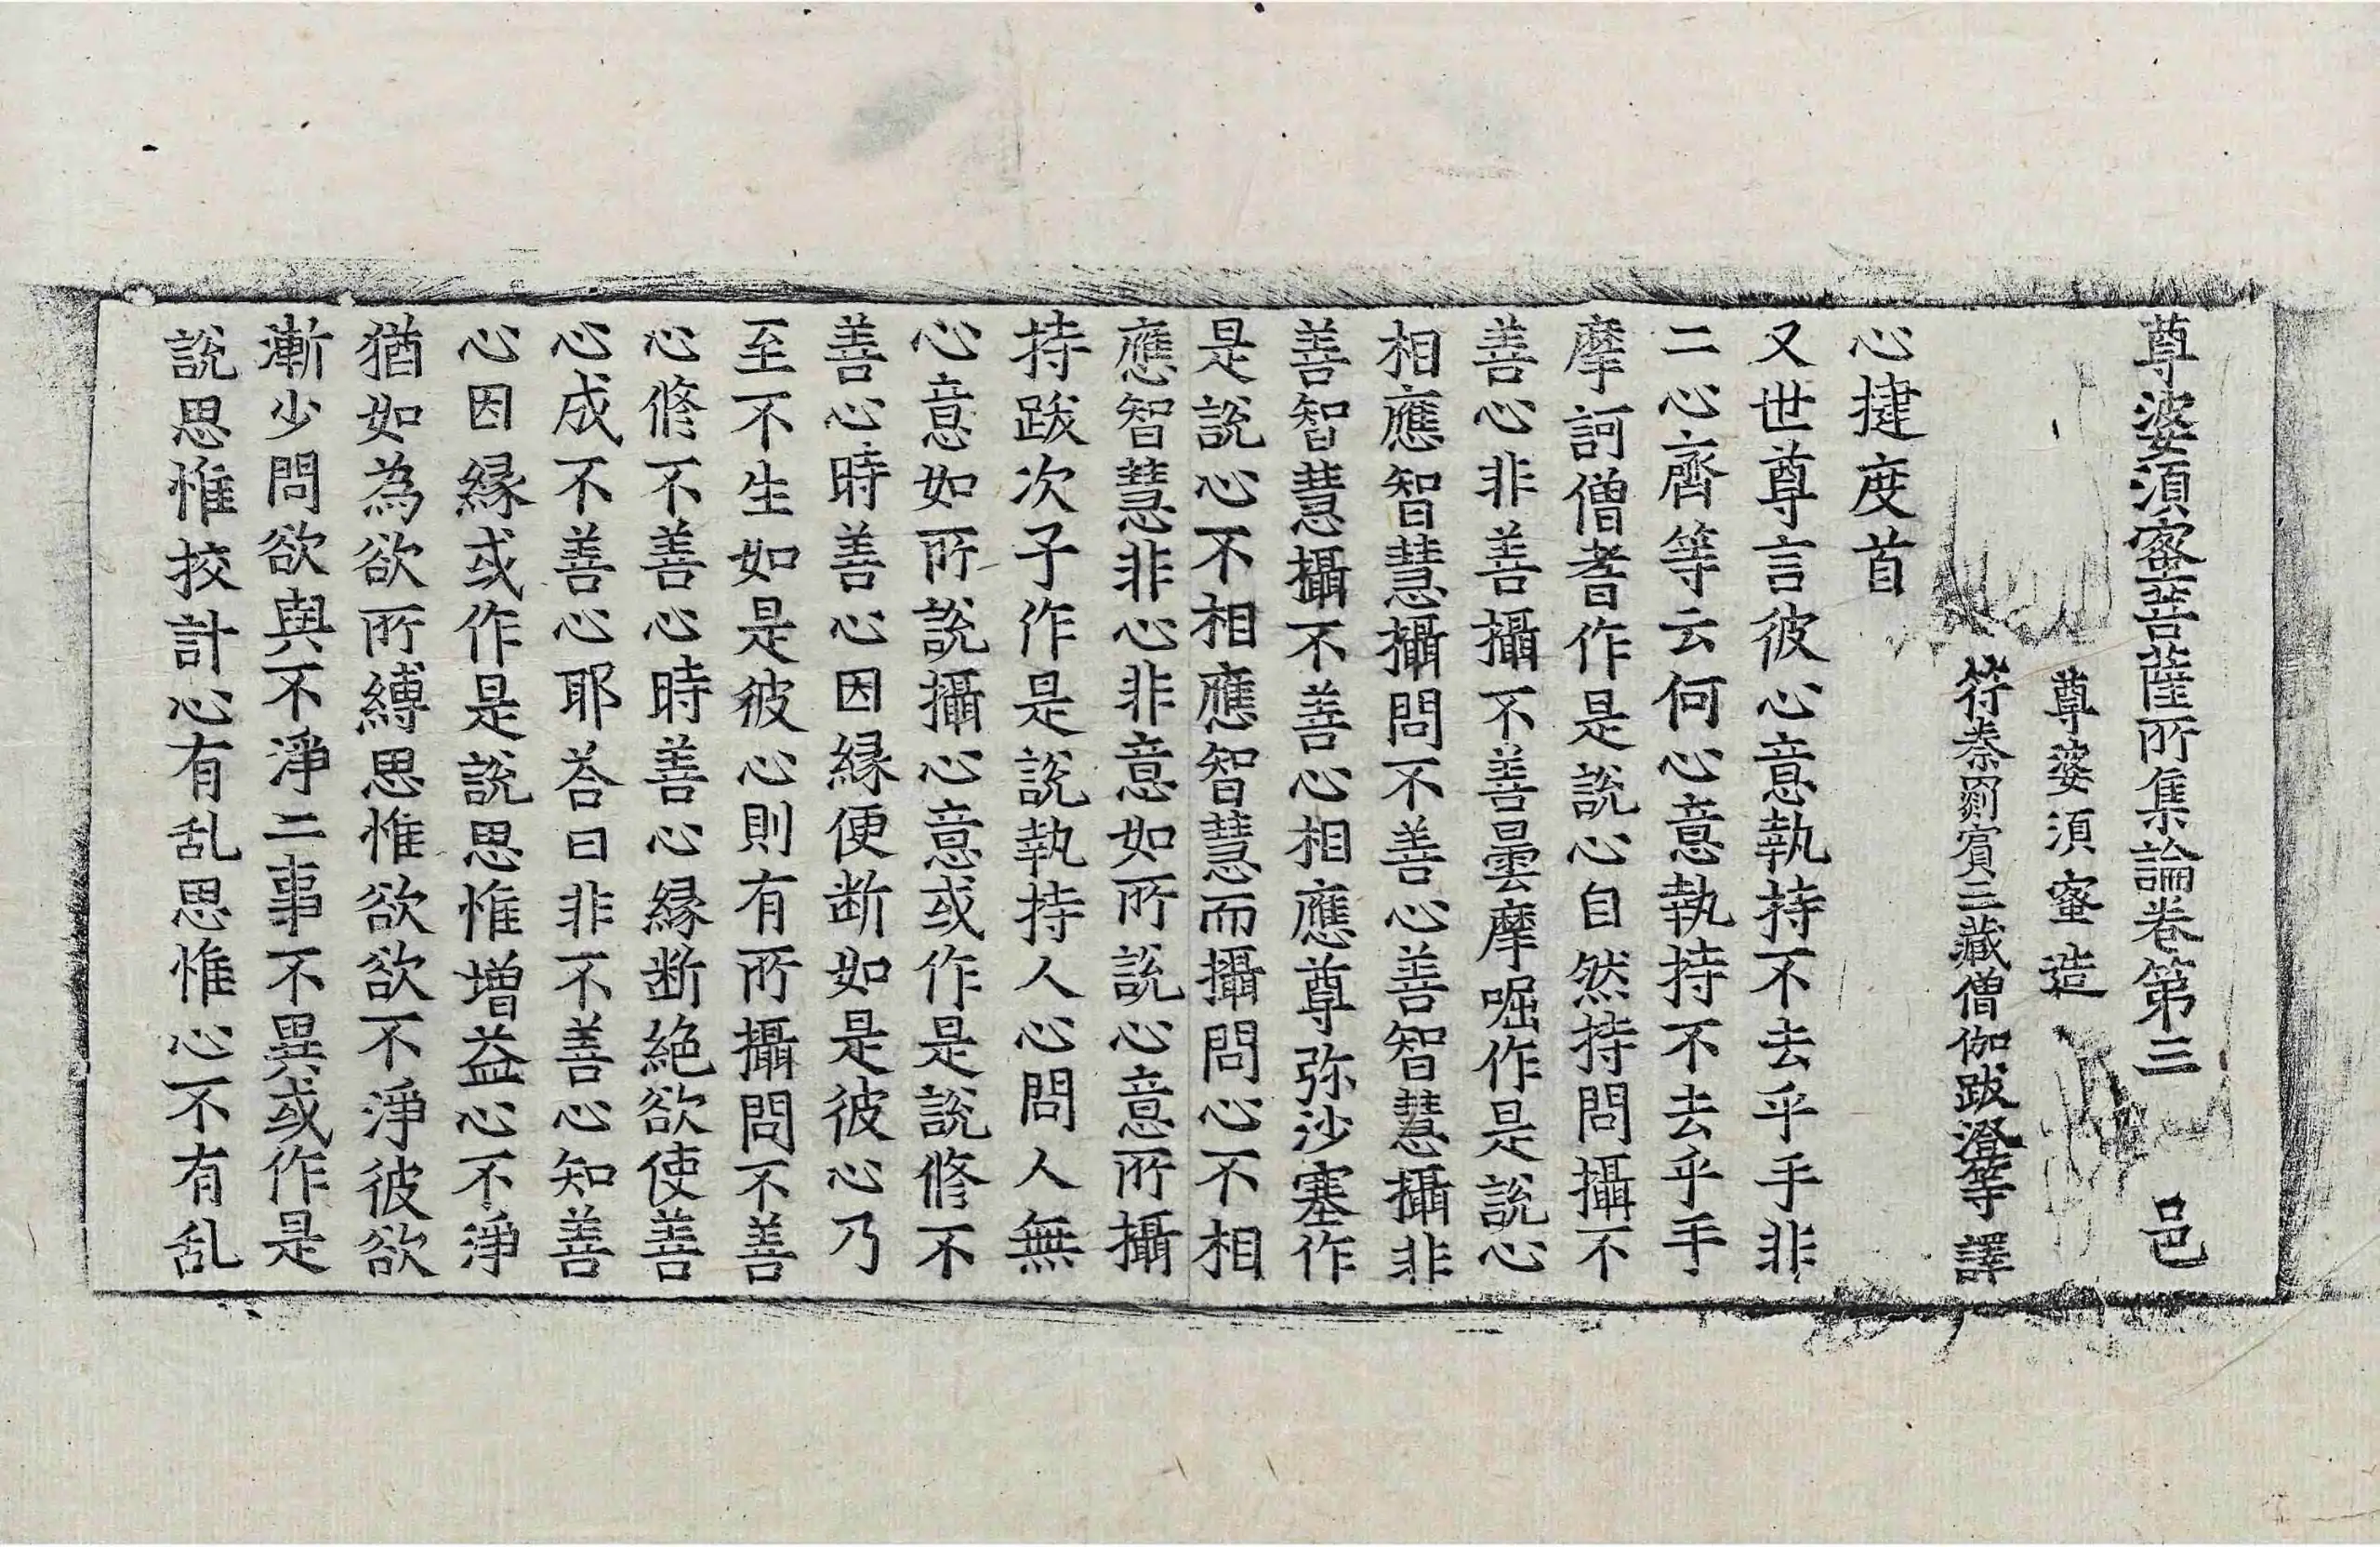 尊婆須蜜菩薩所集論卷第三 邑
尊婆須蜜造
符秦罽賓三藏僧伽跋澄等譯
心揵度首
又世尊言彼心意執持不去乎手非
二心齊等云何心意執持不去乎手
摩訶僧耆作是說心自然持問攝不
善心非善攝不善曇摩崛作是說心
相應智慧攝問不善心善智慧攝非
善智慧攝不善心相應尊弥沙塞作
是說心不相應智慧而攝問心不相
應智慧非心非意如所說心意所攝
持跋次子作是說執持人心問人無
心意如所說攝心意或作是說修不
善心時善心因緣便断如是彼心乃
至不生如是彼心則有所攝問不善
心修不善心時善心緣断絕欲使善
心成不善心耶荅曰非不善心知善
心因緣或作是說思惟增益心不淨
猶如為欲所縛思惟欲欲不淨彼欲
漸少問欲與不淨二事不異或作是
說思惟挍計心有乱思惟心不有乱